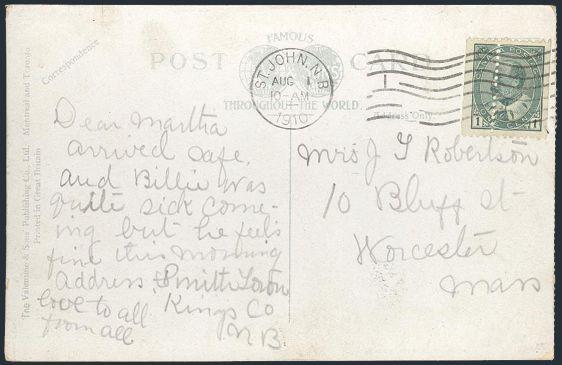 FAMOUS
POST CARD
THROUGHOUT THE WORLD.
Correspondence
Address Only
The Valentine & Sons Publishing Co., Ltd. Montreal and Toronto
Printed in Great Britain
ST. JOHN. N.B.
AUG 1
10-AM
1910
1
CANADA POSTAGE
1 CENT 1
Dear Martha
arrived safe,
and Billie was
quite sick come-
ing but he feels
fine this morning
address Smith Town
Kings Co
N B
love to all
from all
Mrs J T Robertson
10 Bluff st
Worcester
Mass